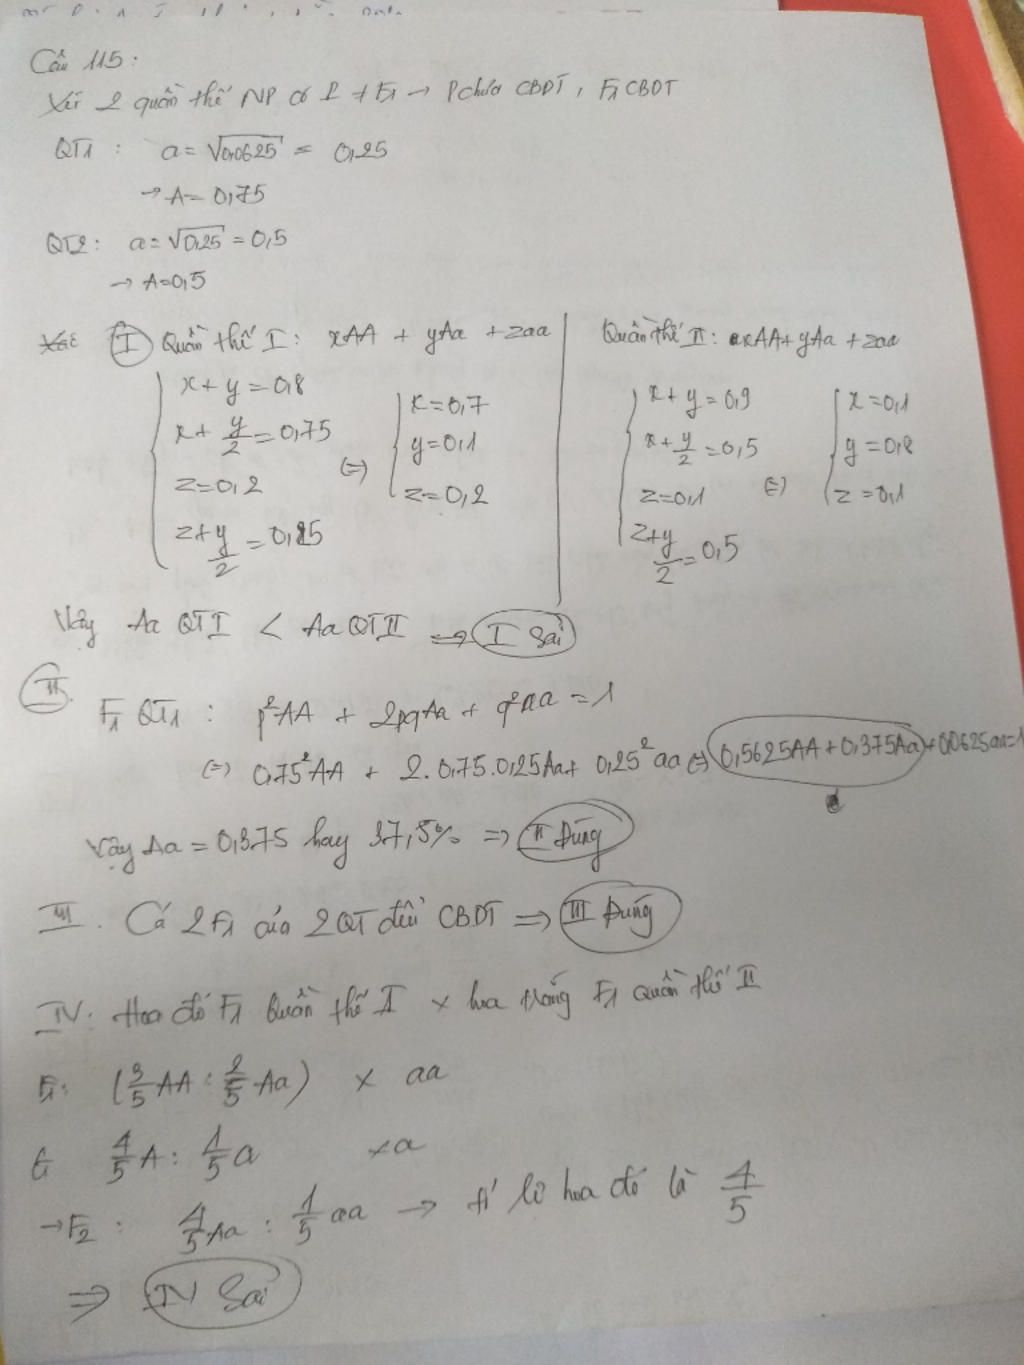 Câu 115:
Xét 2 quần thể NP có 1 + F1 → P chưa CBDT, F1 CBDT
QT1: a = √0,0625 = 0,25
→ A = 0,75
QT2: a = √0,25 = 0,5
→ A = 0,5
I Quần thể I: xAA + yAa + zaa
x + y = 0,8
x + y/2 = 0,75
z = 0,2
z + y/2 = 0,25
(=)
x = 0,7
y = 0,1
z = 0,2
Quần thể II: xAA + yAa + zaa
x + y = 0,9
x + y/2 = 0,5
z = 0,1
z + y/2 = 0,5
(=)
x = 0,1
y = 0,8
z = 0,1
Vậy Aa QT I < Aa QT II ⇒ I Sai
II. F1 QT1: p²AA + 2pqAa + q²aa = 1
(=) 0,75²AA + 2.0,75.0,25Aa + 0,25²aa (=) 0,5625AA + 0,375Aa + 0,0625aa = 1
Vậy Aa = 0,375 hay 37,5% ⇒ II Đúng
III. Cả 2 F1 của 2 QT đều CBDT ⇒ III Đúng
IV: Hoa đỏ F1 Quần thể I × hoa trắng F1 quần thể II
F1: (3/5 AA : 2/5 Aa) × aa
G 4/5 A : 1/5 a × a
→ F2: 4/5 Aa : 1/5 aa → tỉ lệ hoa đỏ là 4/5
⇒ IV Sai